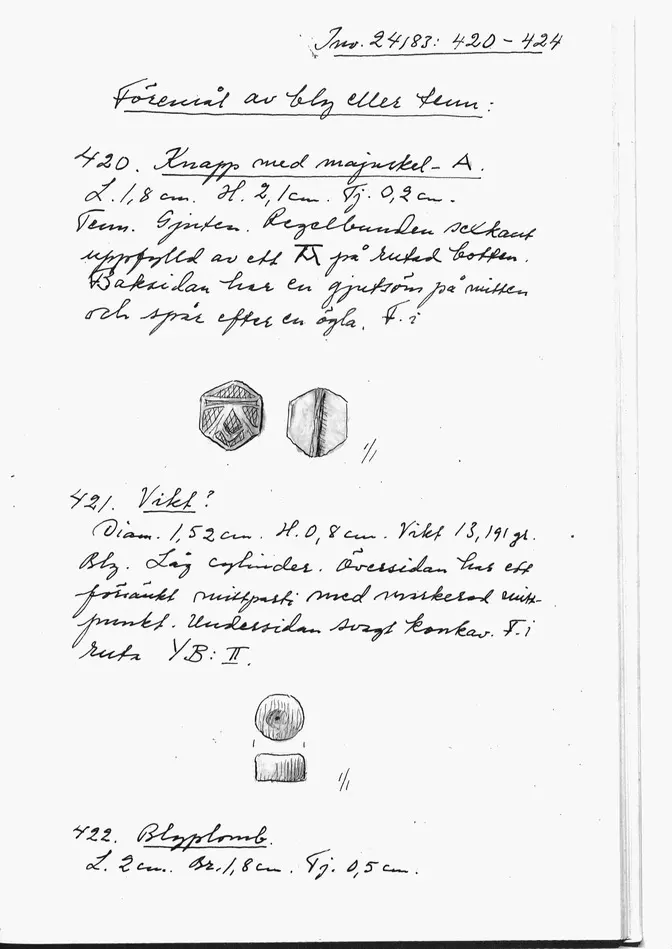 Inv. 24183: 420 - 424
Föremål av bly eller tenn:
420. Knapp med majuskel - A.
L. 1,8 cm. H. 2,1 cm. Tj. 0,2 cm.
Tenn. Gjuten. Regelbunden sexkant
uppfylld av ett A på rutad botten.
Baksidan har en gjutsöm på mitten
och spår efter en ögla. F. i
1/1
421. Vikt?
Diam. 1,52 cm. H. 0,8 cm. Vikt 13,191 gr.
Bly. Låg cylinder. Översidan har ett
försänkt mittparti med markerad mitt-
punkt. Undersidan svagt konkav. F. i
ruta YB: II.
1/1
422. Blyplomb.
L. 2 cm. Br. 1,8 cm. Tj. 0,5 cm.